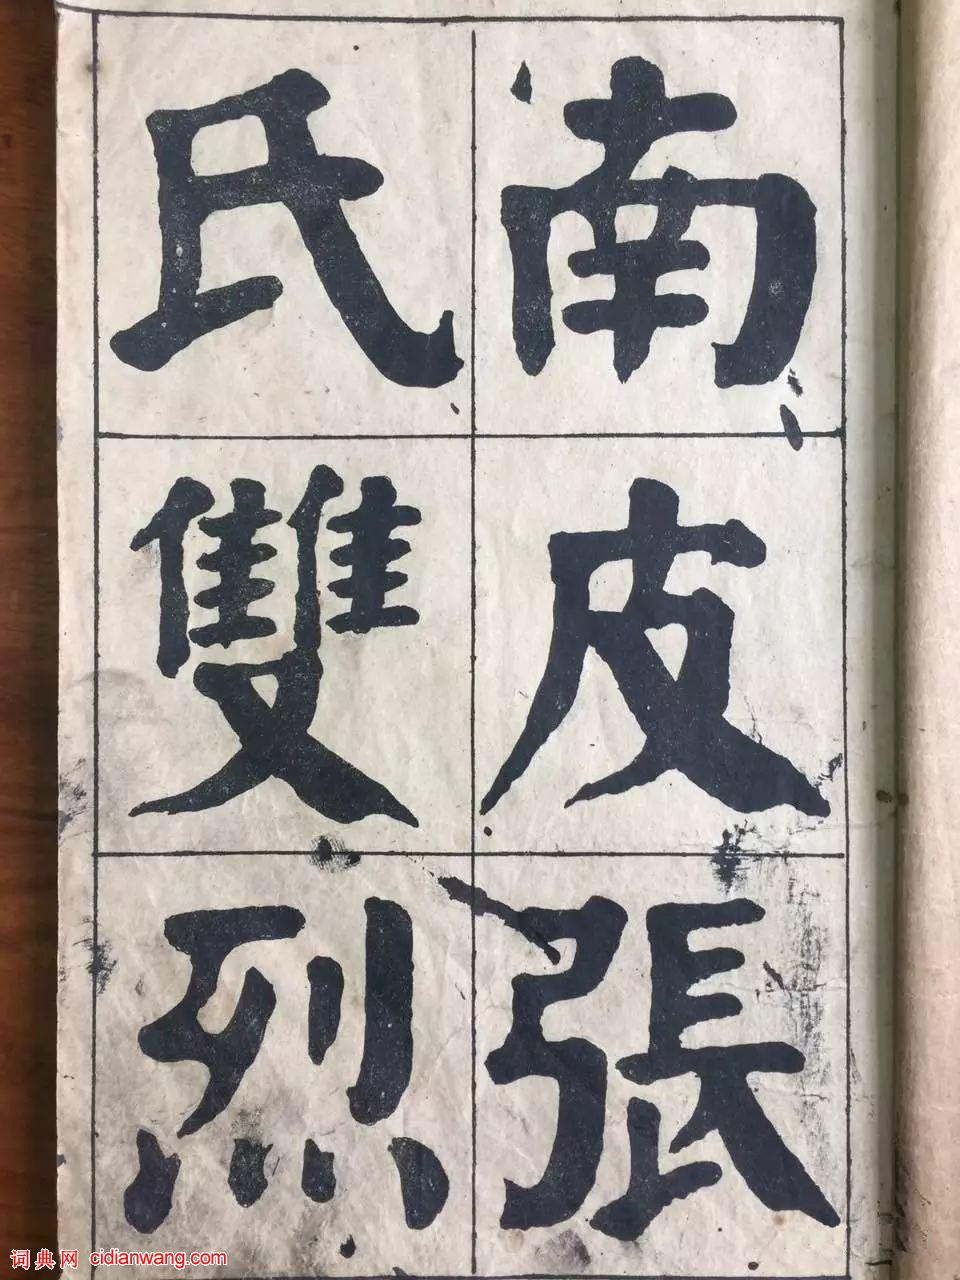 南皮張
氏雙烈
词典网 cidianwang.com